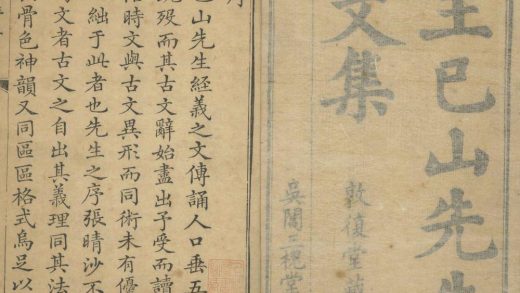 王已山先生
文集
敦復堂
吳閶三槐堂
序
已山先生經義之文傳誦人口垂五
既歿而其古文辭始盡出予受而讀
俗時文與古文異形而同術未有優
絀于此者也先生之序張晴沙不
文者古文之自出其義理同其法
骨色神韻又同區區格式烏足以